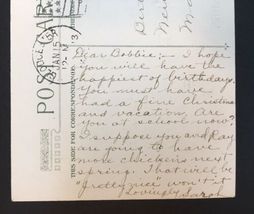 POST CAR
THIS SIDE FOR CORRESPONDENCE
JAN 15
Dear Bobbie:— I hope
you will have the
happiest of birthdays.
You must have
had a fine Christmas
and vacation. Are
you at school now?
I suppose you and Ray
are going to have
more chickens next
spring. That will be
"pretty nice" won't it
Lovingly Sarah